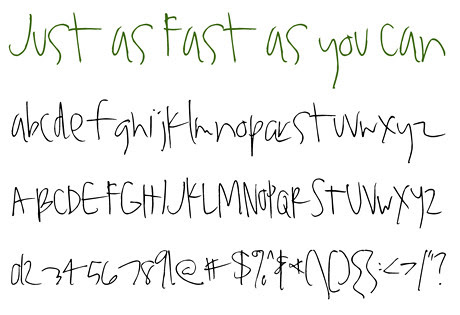 Just as Fast as you can
abcdefghijklmnopqrstuvwxyz
ABCDEFGHIJKLMNOPQRSTUVWXYZ
23456789 @#$%^&*(){}:<>/"?